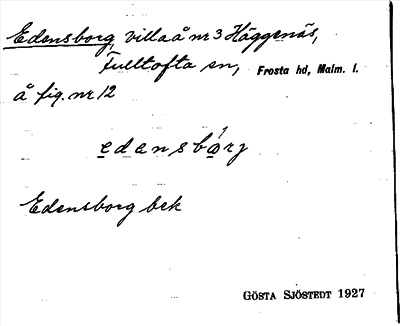 Edensborg, villa å nr 3 Häggenäs,
Fulltofta sn, Frosta hd, Malm. l.
å fig. nr 12
edensbårj
Edensborg bek
GÖSTA SJÖSTEDT 1927